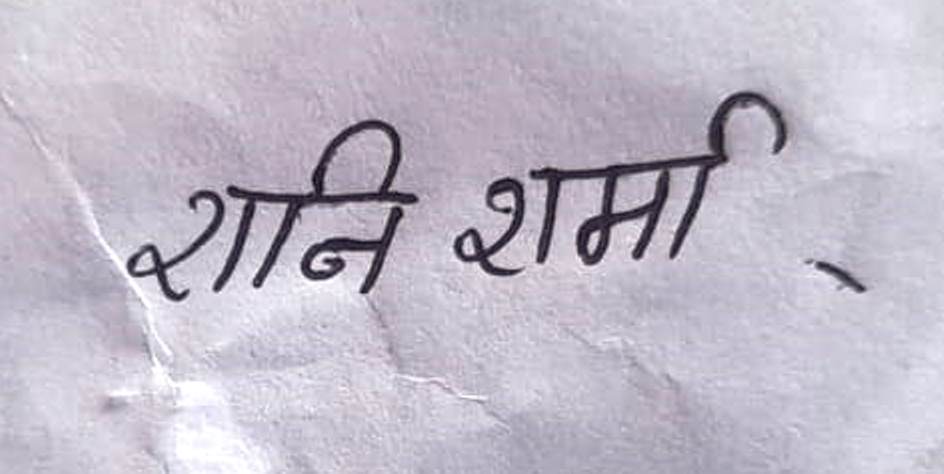 शनि शर्मा